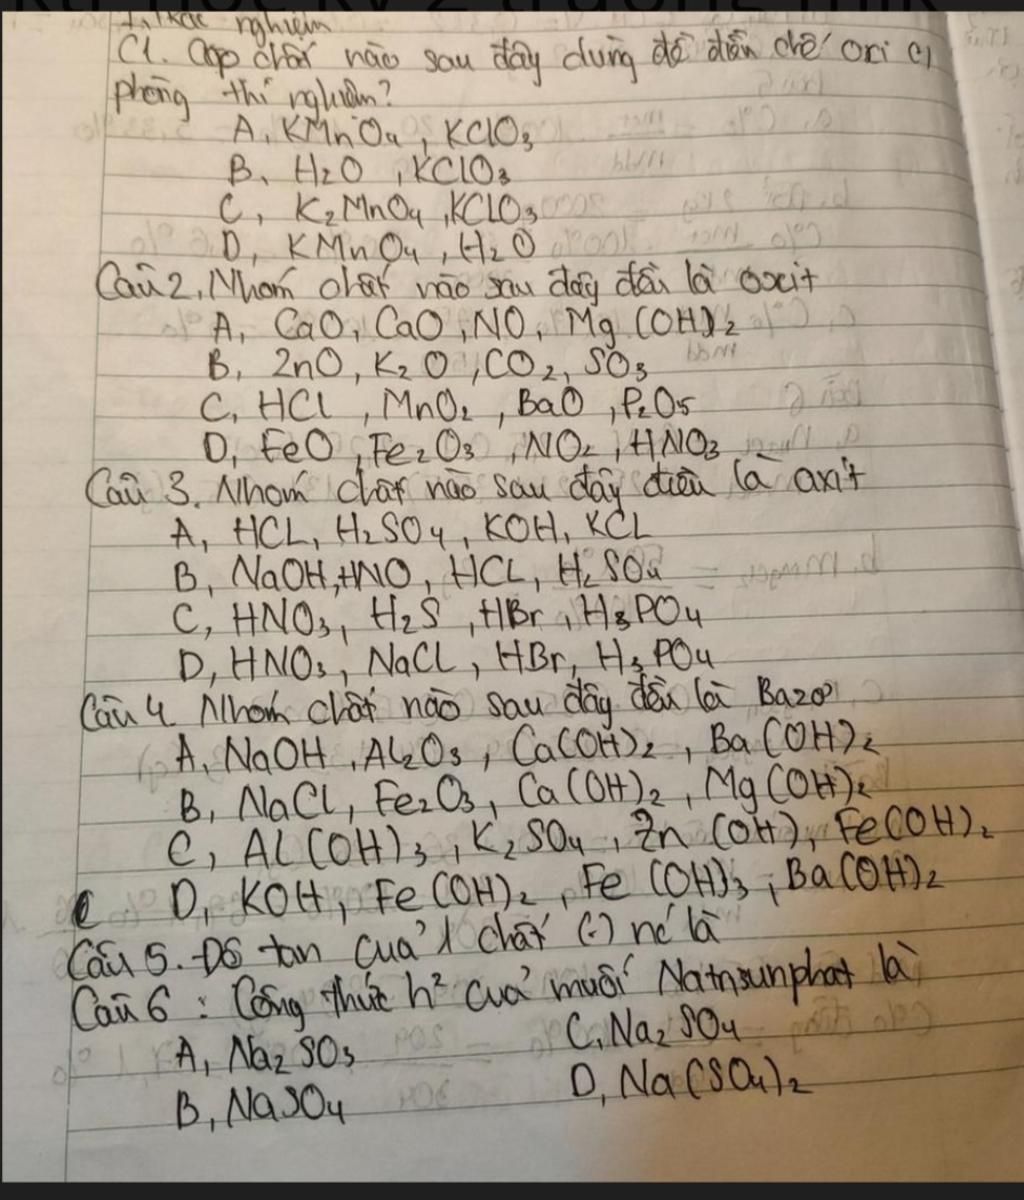 nghiệm
C1. Cặp chất nào sau đây dùng để điều chế oxi
phòng thí nghiệm?
A, KMnO4, KClO3
B, H2O, KClO3
C, K2MnO4, KClO3
D, KMnO4, H2O
Câu 2. Nhóm chất nào sau đây đều là oxit
A, CaO, CaO, NO, Mg(OH)2
B, ZnO, K2O, CO2, SO3
C, HCl, MnO2, BaO, P2O5
D, FeO, Fe2O3, NO2, HNO3
Câu 3. Nhóm chất nào sau đây đều là axit
A, HCL, H2SO4, KOH, KCL
B, NaOH, HNO, HCL, H2SO4
C, HNO3, H2S, HBr, H3PO4
D, HNO3, NaCL, HBr, H3PO4
Câu 4. Nhóm chất nào sau đây đều là Bazơ
A, NaOH, AL2O3, Ca(OH)2, Ba(OH)2
B, NaCl, Fe2O3, Ca(OH)2, Mg(OH)2
C, AL(OH)3, K2SO4, Zn(OH), Fe(OH)2
D, KOH, Fe(OH)2, Fe(OH)3, Ba(OH)2
Câu 5. Độ tan của 1 chất (-) nc là
Câu 6: Công thức h² của muối Natrisunphat là
A, Na2SO3 C, Na2SO4
B, NaSO4 D, Na(SO4)2